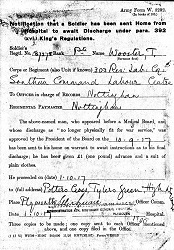 Army Form W. 3202.
Notification that a Soldier has been sent Home from
Hospital to await Discharge under para. 392
King's Regulations.
Soldier's
Regtl. No. Rank Pte Name Wooster T
Corps or Regiment (also Unit if known) 309 Res. Lab. Coy
Southern Command Labour Centre
To Officer in charge of Records Nottingham
Regimental Paymaster Nottingham
The above-named man, who appeared before a Medical Board, and
whose discharge as "no longer physically fit for war service," was
approved by the President of the Board on 10.9.17
been sent to his home on warrant to await instructions for his final dis-
charge; he has been given £1 (one pound) advance and a suit of
plain clothes.
He proceeded on 1.10.17
to (full address) Tylers Green High
Place Plymouth Officer Comm.
Date 1.10.17 Hospital.
Three copies to be made; one copy sent to each Officer
above, and one copy filed in the Office.